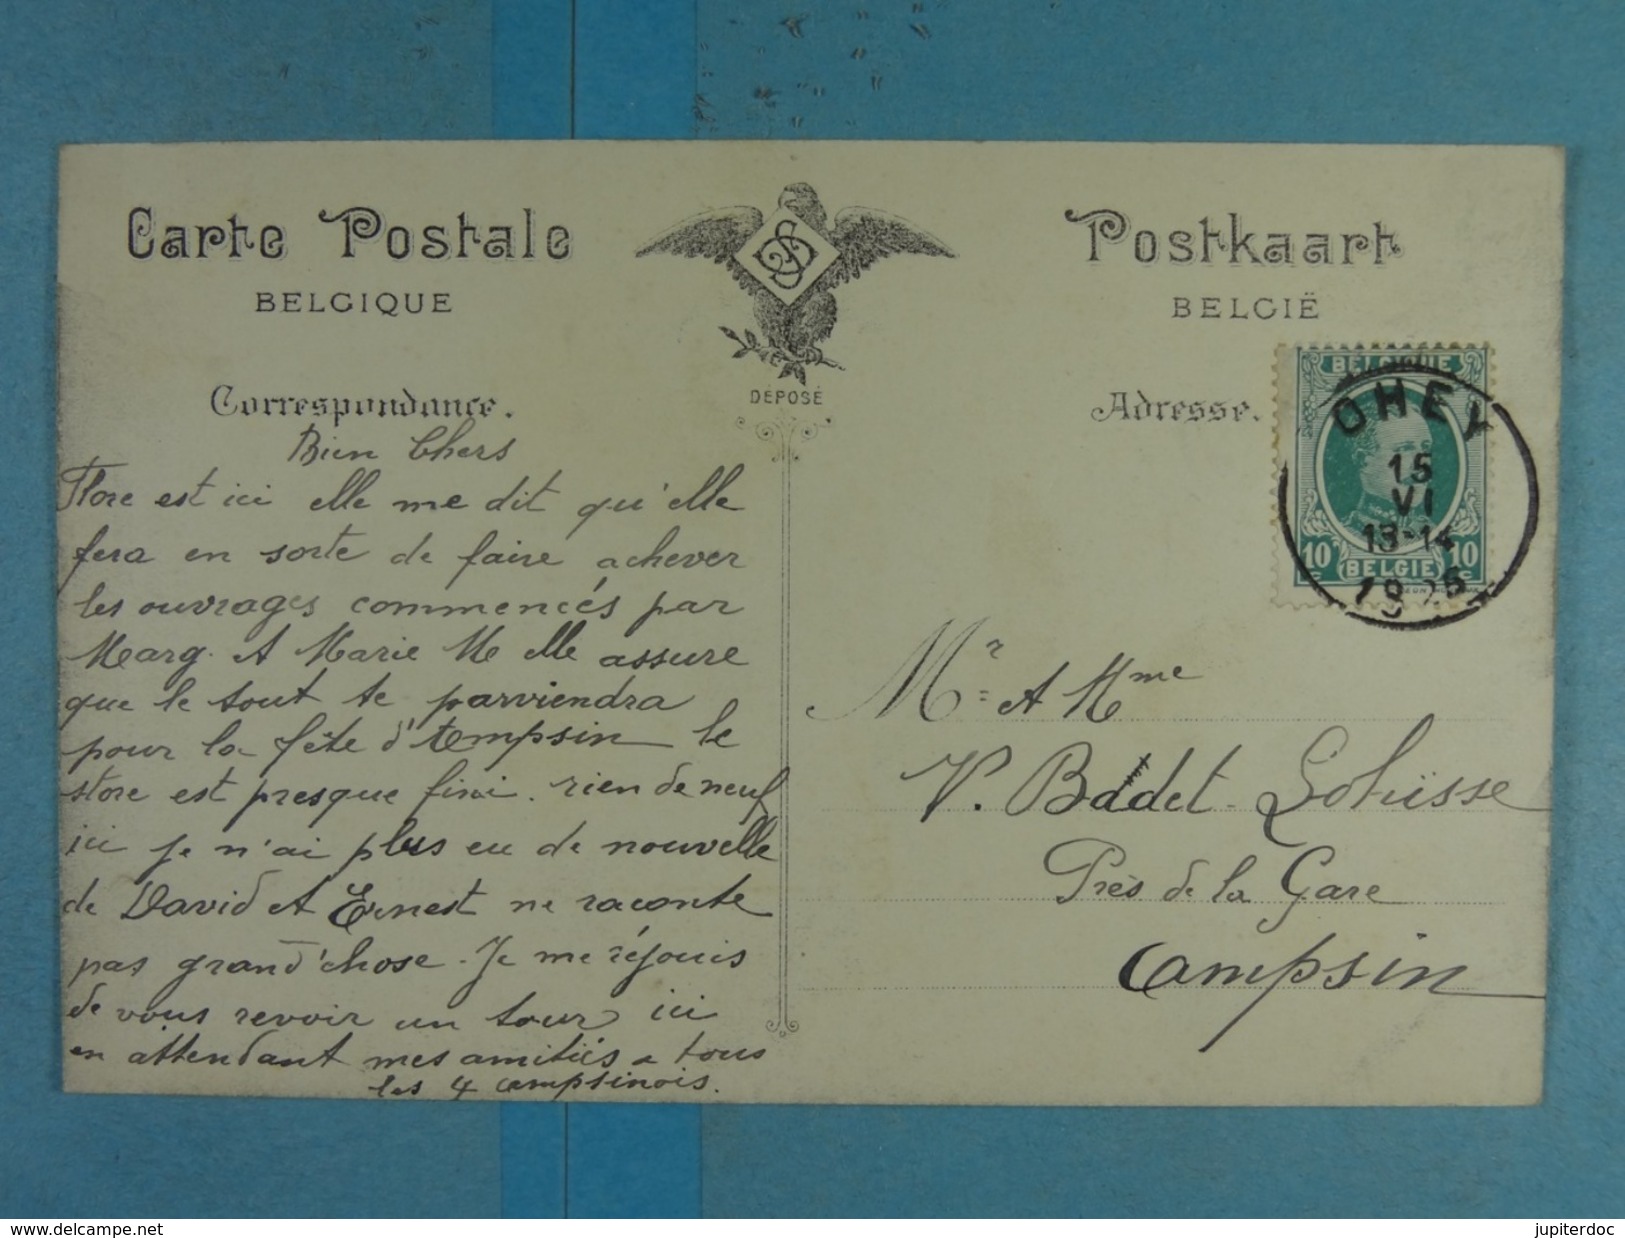 Carte Postale
BELGIQUE
DÉPOSÉ
Postkaart
BELGIË
Correspondance.
Bien Chers
Flore est ici elle me dit qu'elle
fera en sorte de faire achever
les ouvrages commencés par
Marg. et Marie M elle assure
que le tout te parviendra
pour la fête d'tempsin le
store est presque fini. rien de neuf
ici je n'ai plus eu de nouvelle
de David et Ernest ne raconte
pas grand'chose. Je me réjouis
de vous revoir un tour ici
en attendant mes amitiés a tous
les 4 campsinois.
Adresse.
BELGIQUE
10 c 10 c
BELGIE
OHEY
15
VI
13-14
1926
Mr et Mme
V. Badet-Lohisse
Près de la Gare
Campsin
www.delcampe.net
jupiterdoc